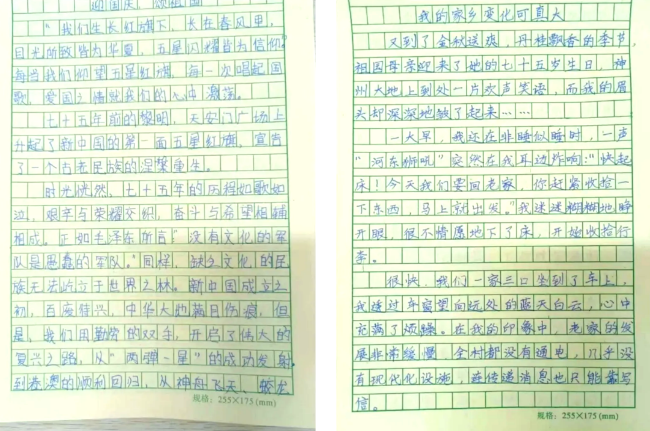 迎国庆，颂祖国
"我们生长红旗下，长在春风里，
目光所致皆为华夏，五星闪耀皆为信仰。"
每当我们仰望五星红旗，每一次唱起国
歌，爱国之情就在我们的心中激荡。
七十五年前的黎明，天安门广场上
升起了新中国的第一面五星红旗，宣告
了一个古老民族的涅槃重生。
时光恍然，七十五年的历程如歌如
泣，艰辛与荣耀交织，奋斗与希望相辅
相成。正如毛泽东所言："没有文化的军
队是愚蠢的军队。"同样，缺乏文化的民
族无法屹立于世界之林。新中国成立之
初，百废待兴，中华大地满目伤痕，但
是，我们用勤劳的双手，开启了伟大的
复兴之路，从"两弹一星"的成功发射
到港澳的顺利回归，从神舟飞天、蛟龙
规格：255×175(mm)
我的家乡变化可真大
又到了金秋送爽，丹桂飘香的季节，
祖国母亲迎来了她的七十五岁生日，神
州大地上到处一片欢声笑语，而我的眉
头却深深地皱了起来……
一大早，我还在非睡似睡时，一声
"河东狮吼"突然在我耳边炸响："快起
床！今天我们要回老家，你赶紧收拾一
下东西，马上就出发。"我迷迷糊糊地睁
开眼，很不情愿地下了床，开始收拾行
李。
很快，我们一家三口坐到了车上，
我透过车窗望向远处的蓝天白云，心中
充满了烦躁。在我的印象中，老家的发
展非常缓慢，全村都没有通电，几乎没
有现代化设施，连传递消息也只能靠写
信。
规格：255×175(mm)